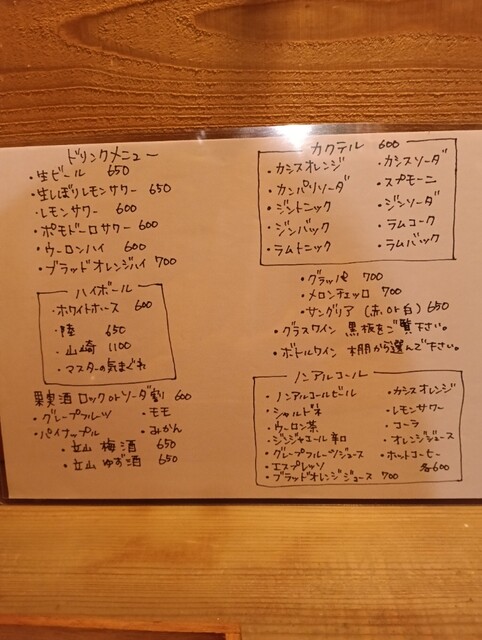 ドリンクメニュー
・生ビール 650
・生しぼりレモンサワー 650
・レモンサワー 600
・ポモドーロサワー 600
・ウーロンハイ 600
・ブラッドオレンジハイ 700
ハイボール
・ホワイトホース 600
・陸 650
・山崎 1100
・マスターの気まぐれ
果実酒 ロックorソーダ割 600
・グレープフルーツ ・モモ
・パイナップル ・みかん
・立山 梅酒 650
・立山 ゆず酒 650
カクテル 600
・カシスオレンジ ・カシスソーダ
・カンパリソーダ ・スプモーニ
・ジントニック ・ジンソーダ
・ジンバック ・ラムコーク
・ラムトニック ・ラムバック
・グラッパ 700
・メロンチェッロ 700
・サングリア (赤 or 白) 650
・グラスワイン 黒板をご覧下さい。
・ボトルワイン 本棚から選んで下さい。
ノンアルコール
・ノンアルコールビール ・カシスオレンジ
・シャルドネ ・レモンサワー
・ウーロン茶 ・コーラ
・ジンジャエール辛口 ・オレンジジュース
・グレープフルーツジュース ・ホットコーヒー
・エスプレッソ 各600
・ブラッドオレンジジュース 700